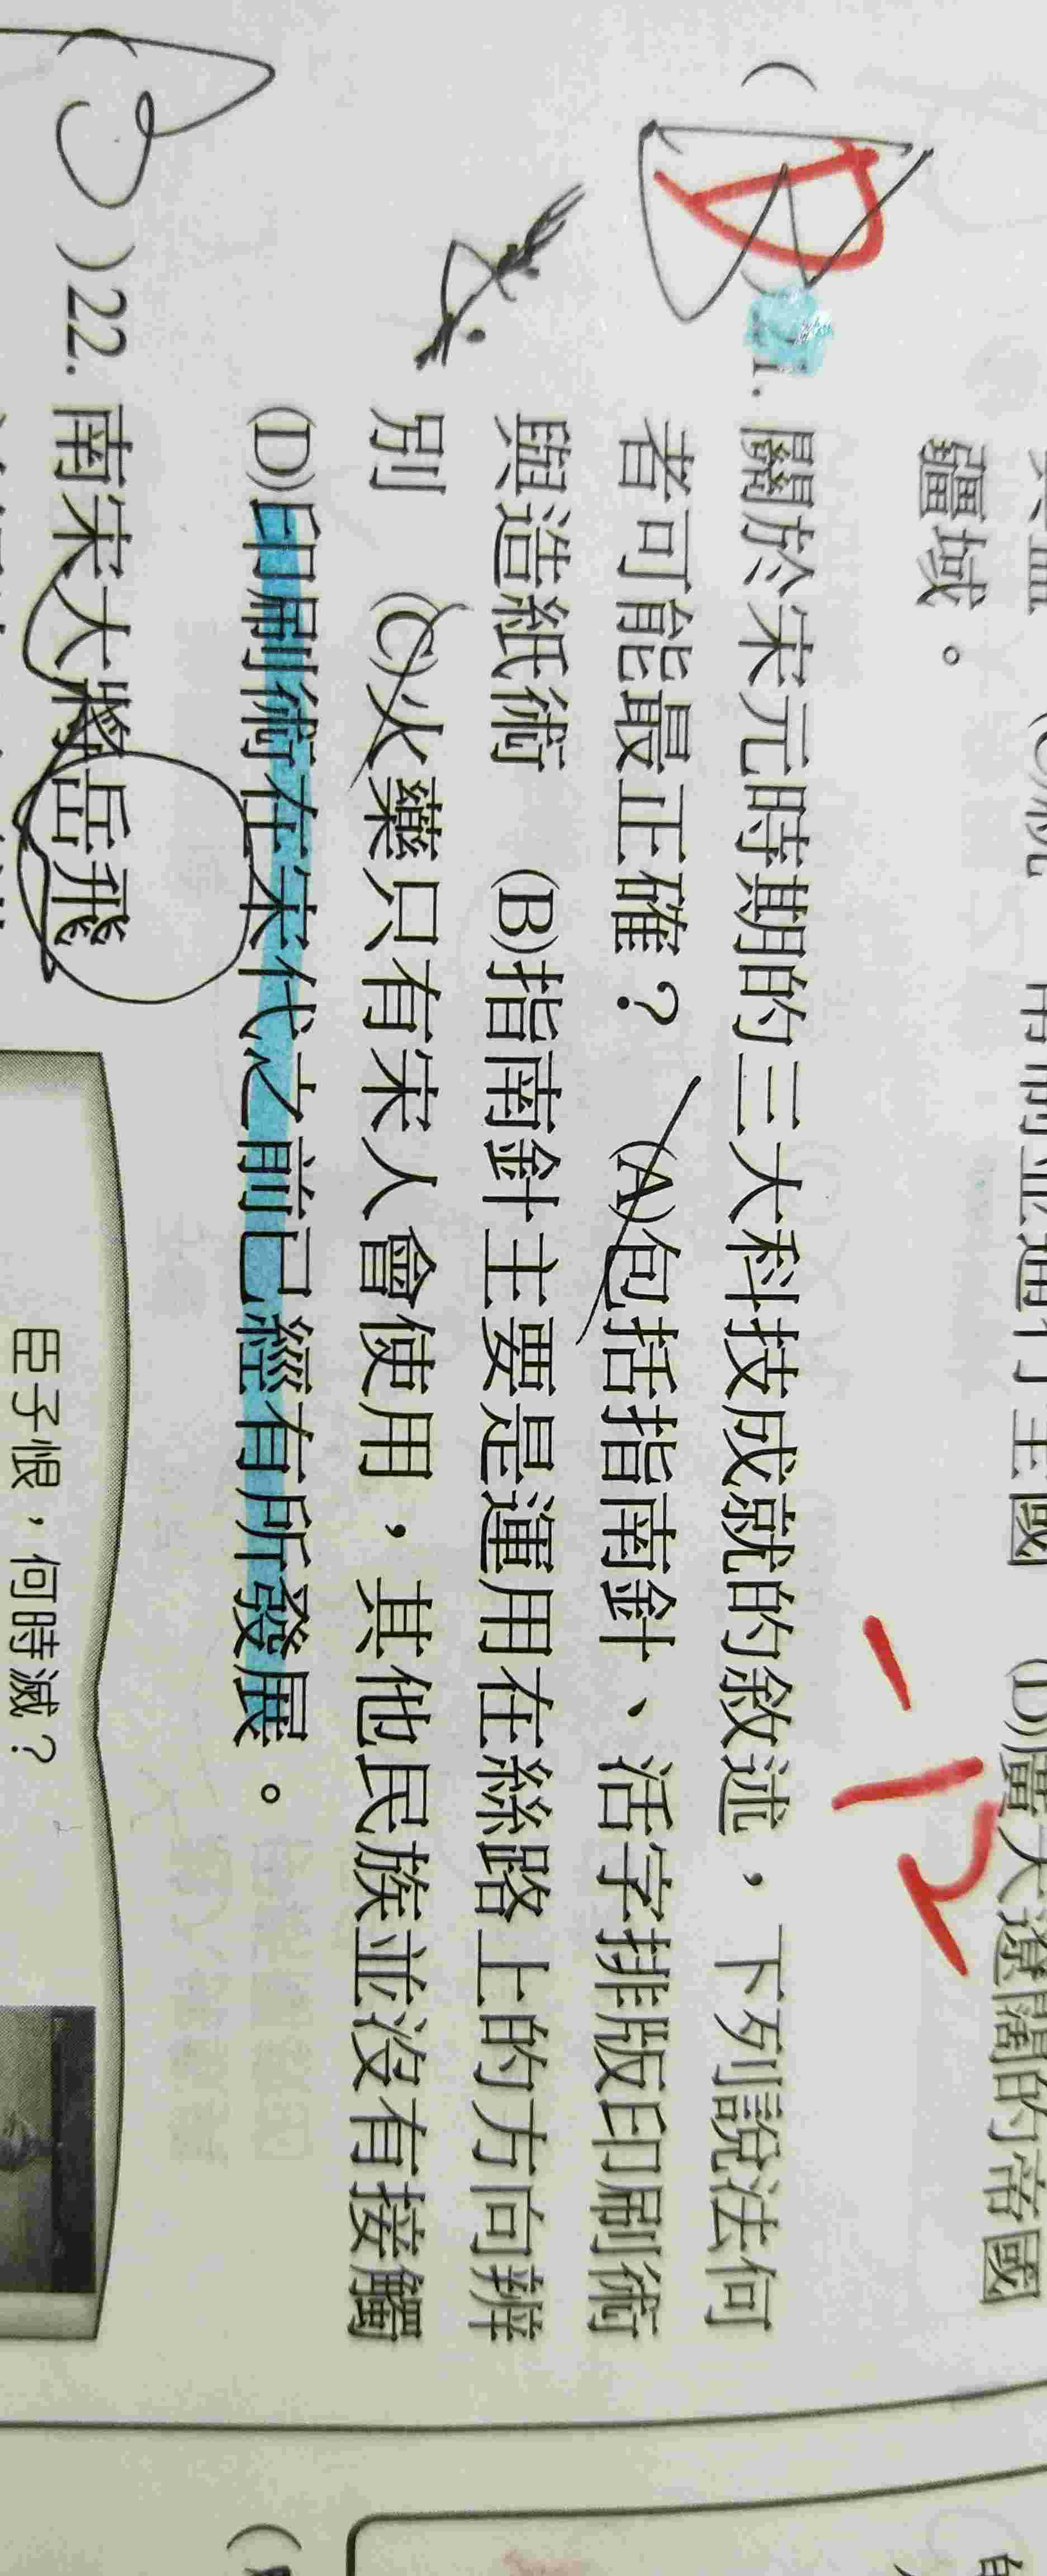 疆域。
(D)廣大遼闊的帝國
-12
(B)21. 關於宋元時期的三大科技成就的敘述，下列說法何
者可能最正確？ (A)包括指南針、活字排版印刷術
與造紙術 (B)指南針主要是運用在絲路上的方向辨
別 (C)火藥只有宋人會使用，其他民族並沒有接觸
(D)印刷術在宋代之前已經有所發展。
)22. 南宋大將岳飛
臣子恨，何時滅？